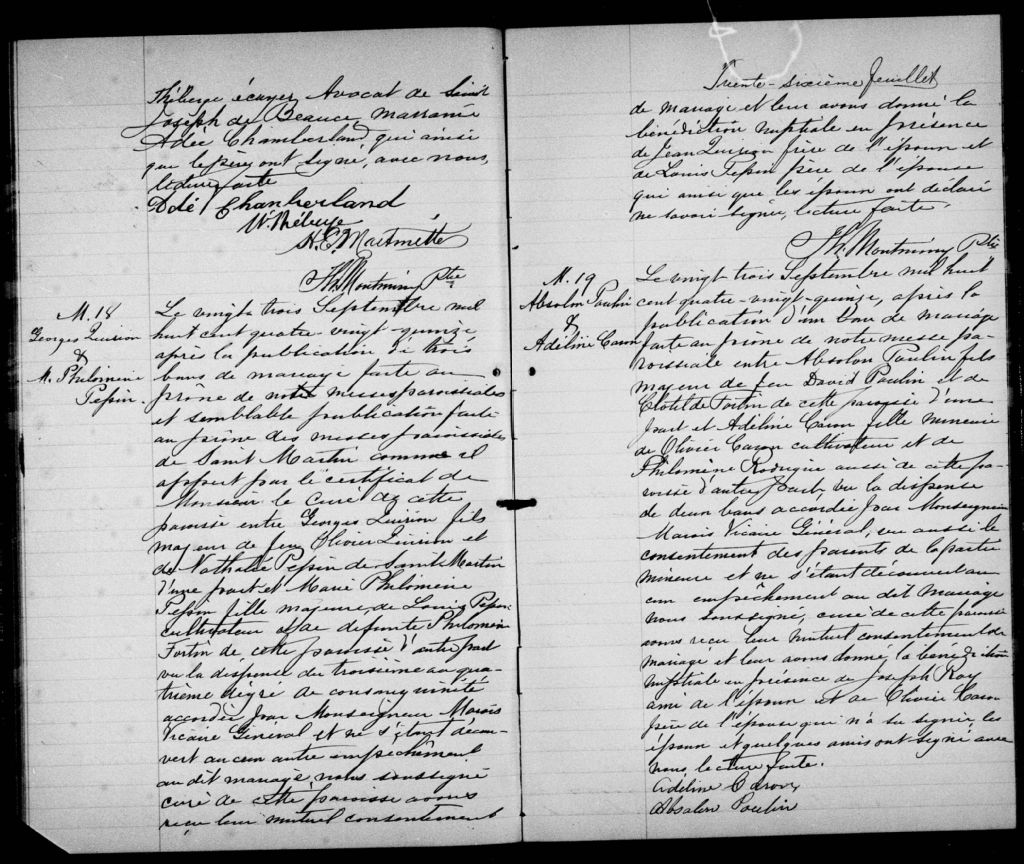 Théberge écuyer Avocat de Saint
Joseph de Beauce, marraine
Adée Chamberland, qui ainsi
que le père ont signé, avec nous,
lecture faite
Adé Chamberland
W. Théberge
Th. Montminy Ptre
M. 18
Georges Quirion
&
M. Philomène
Pepin.
Le vingt trois Septembre mil
huit cent quatre-vingt-quinze
après la publication de trois
bans de mariage faite au
prône de notre messes paroissiales
et semblable publication faite
au prône des messes paroissiales
de Saint Martin comme il
appert par le certificat de
Monsieur le Curé de cette
paroisse entre Georges Quirion fils
majeur de feu Olivier Quirion et
de Nathalie Pepin de Saint Martin
d'une part et Marie Philomène
Pepin fille majeure de Louis Pepin
cultivateur et de defunte Philomène
Fortin de cette paroisse d'autre part
vu la dispense du troisième au qua-
trième degré de consanguinité
accordée par Monseigneur Marois
Vicaire Général et ne s'étant décou-
vert aucun autre empêchement
au dit mariage, nous soussigné
curé de cette paroisse avons
reçu leur mutuel consentement
Trente-sixième feuillet
de mariage et leur avons donné la
bénédiction nuptiale en présence
de Jean Quirion frère de l'époux et
de Louis Pepin père de l'épouse
qui ainsi que les époux ont déclaré
ne savoir signer, lecture faite.
Th. Montminy Ptre
M. 19
Absolon Poulin
&
Adéline Caron
Le vingt trois Septembre mil huit
cent quatre-vingt-quinze, après la
publication d'un ban de mariage
faite au prône de notre messe pa-
roissiale entre Absolon Poulin fils
majeur de feu David Poulin et de
Clotilde Fortin de cette paroisse d'une
part et Adéline Caron fille mineure
de Olivier Caron cultivateur et de
Philomène Rodrigue aussi de cette pa-
roisse d'autre part, vu la dispense
de deux bans accordée par Monseigneur
Marois Vicaire Général, vu aussi le
consentement des parents de la partie
mineure et ne s'étant découvert au-
cun empêchement au dit mariage
nous soussigné, curé de cette paroisse
avons reçu leur mutuel consentement de
mariage et leur avons donné la bénédiction
nuptiale en présence de Joseph Roy
ami de l'époux et de Olivier Caron
père de l'épouse qui n'a su signer, les
époux et quelques amis ont signé avec
nous, lecture faite.
Adéline Caron
Absalon Poulin